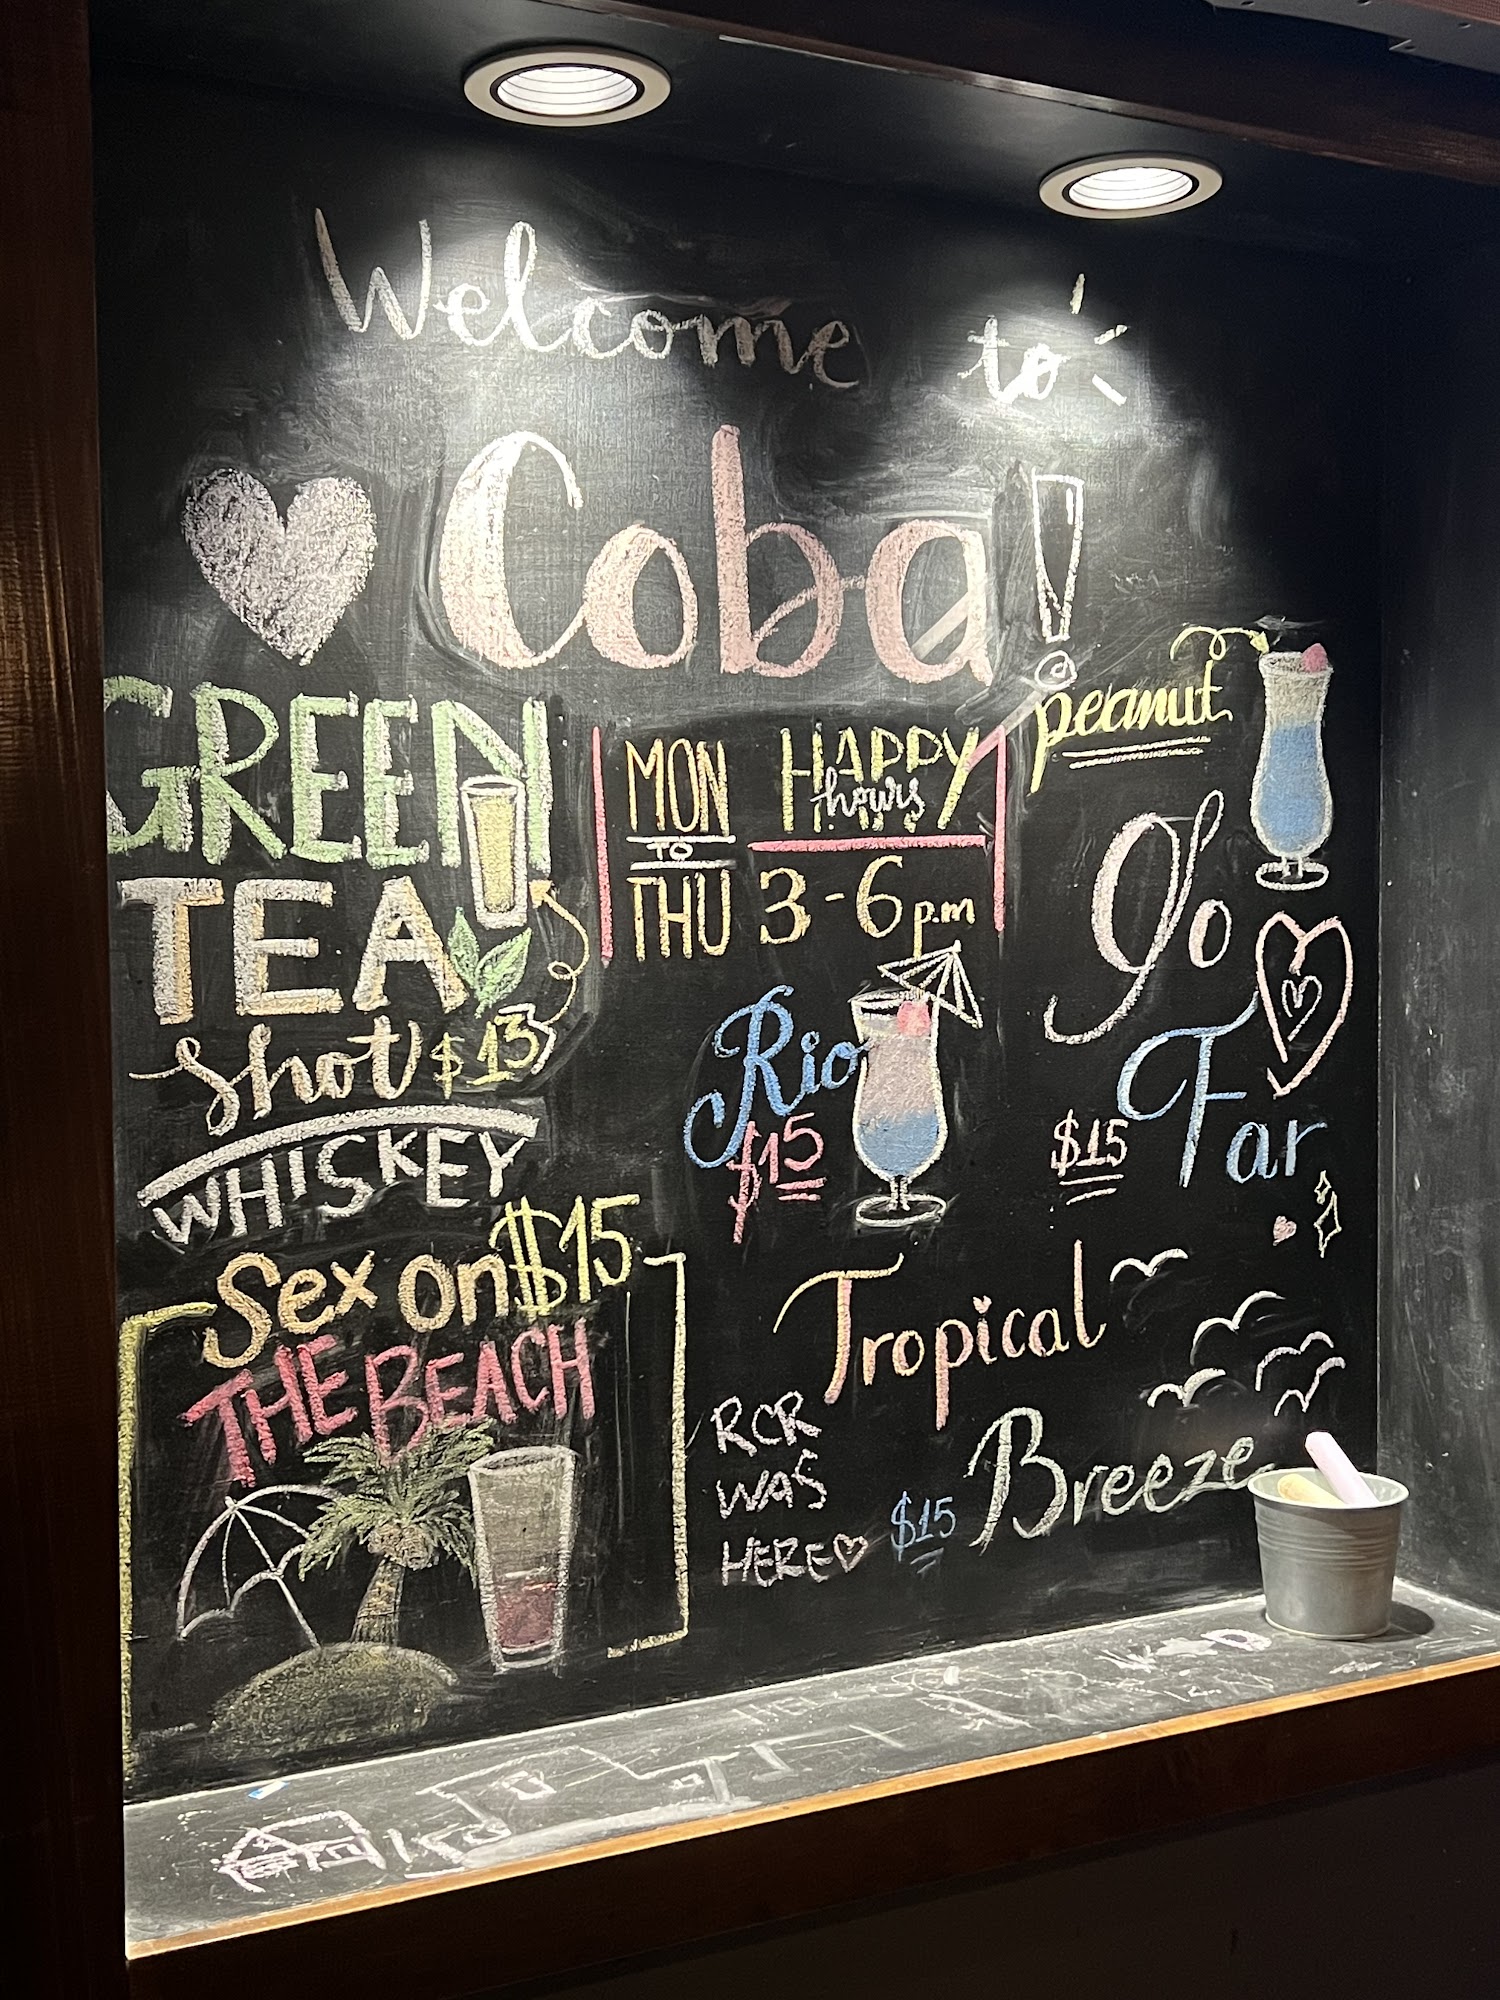 Welcome to
Coba!
GREEN
TEA
Shot $13
WHISKEY
MON
TO
THU
HAPPY
hours
3-6 p.m
peanut
Go
Far
$15
Rio
$15
Sex on $15
THE BEACH
Tropical
Breeze
$15
RCR
WAS
HERE